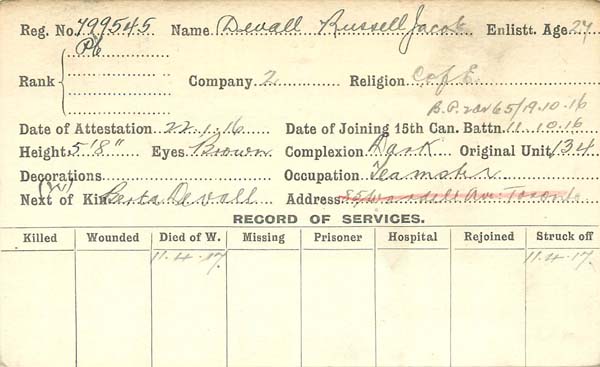 Reg. No. 799545 Name Devall Russell Jacob Enlistt. Age 27
Rank Pte
Company 2 Religion C of E.
B.P. 2or 65/19.10.16
Date of Attestation 22.1.16 Date of Joining 15th Can. Battn. 11.10.16
Height 5'8" Eyes Brown Complexion Dark Original Unit 134
Decorations Occupation Teamster
(W) Next of Kin Berta Devall Address Av. Toronto
RECORD OF SERVICES.
Killed Wounded Died of W. Missing Prisoner Hospital Rejoined Struck off
11.4.17 11.4.17.